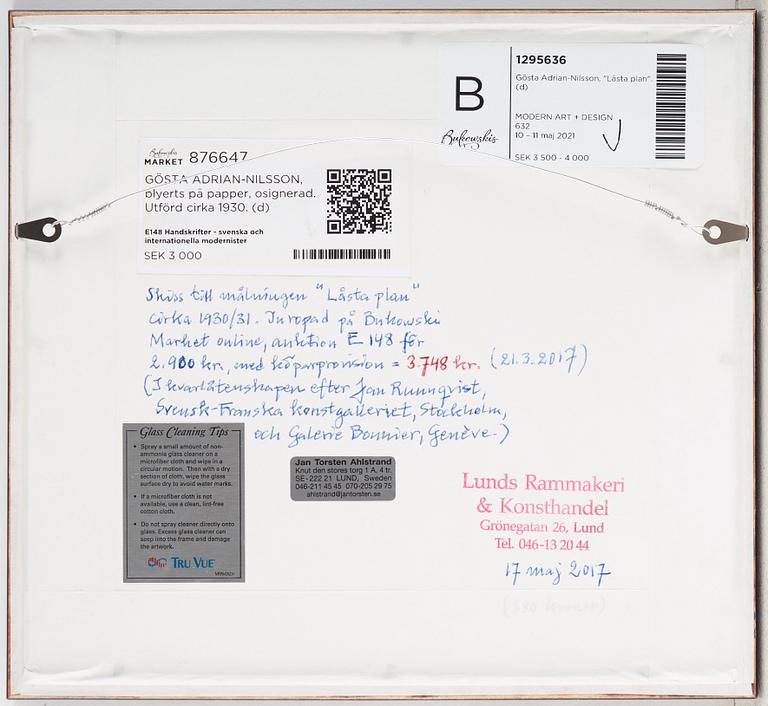 B
Bukowskis
1295636
Gösta Adrian-Nilsson, "Låsta plan".
(d)
MODERN ART + DESIGN
632
10 - 11 maj 2021
SEK 3 500 - 4 000
Bukowskis
MARKET 876647
GÖSTA ADRIAN-NILSSON,
blyerts på papper, osignerad.
Utförd cirka 1930. (d)
E148 Handskrifter - svenska och
internationella modernister
SEK 3 000
Skiss till målningen "Låsta plan"
cirka 1930/31. Inropad på Bukowski
Market online, auktion E 148 för
2.900 kr, med köparprovision = 3.748 kr. (21.3.2017)
(I kvarlåtenskapen efter Jan Runnqvist,
Svensk-Franska konstgalleriet, Stockholm,
och Galerie Bonnier, Genève.)
Glass Cleaning Tips
• Spray a small amount of non-
ammonia glass cleaner on a
microfiber cloth and wipe in a
circular motion. Then with a dry
section of cloth, wipe the glass
surface dry to avoid water marks.
• If a microfiber cloth is not
available, use a clean, lint-free
cotton cloth.
• Do not spray cleaner directly onto
glass. Excess glass cleaner can
seep into the frame and damage
the artwork.
TRU VUE
Jan Torsten Ahlstrand
Knut den stores torg 1 A, 4 tr.
SE-222 21 LUND, Sweden
046-211 45 45 070-205 29 75
ahlstrand@jantorsten.se
Lunds Rammakeri
& Konsthandel
Grönegatan 26, Lund
Tel. 046-13 20 44
17 maj 2017
(380 kronor)